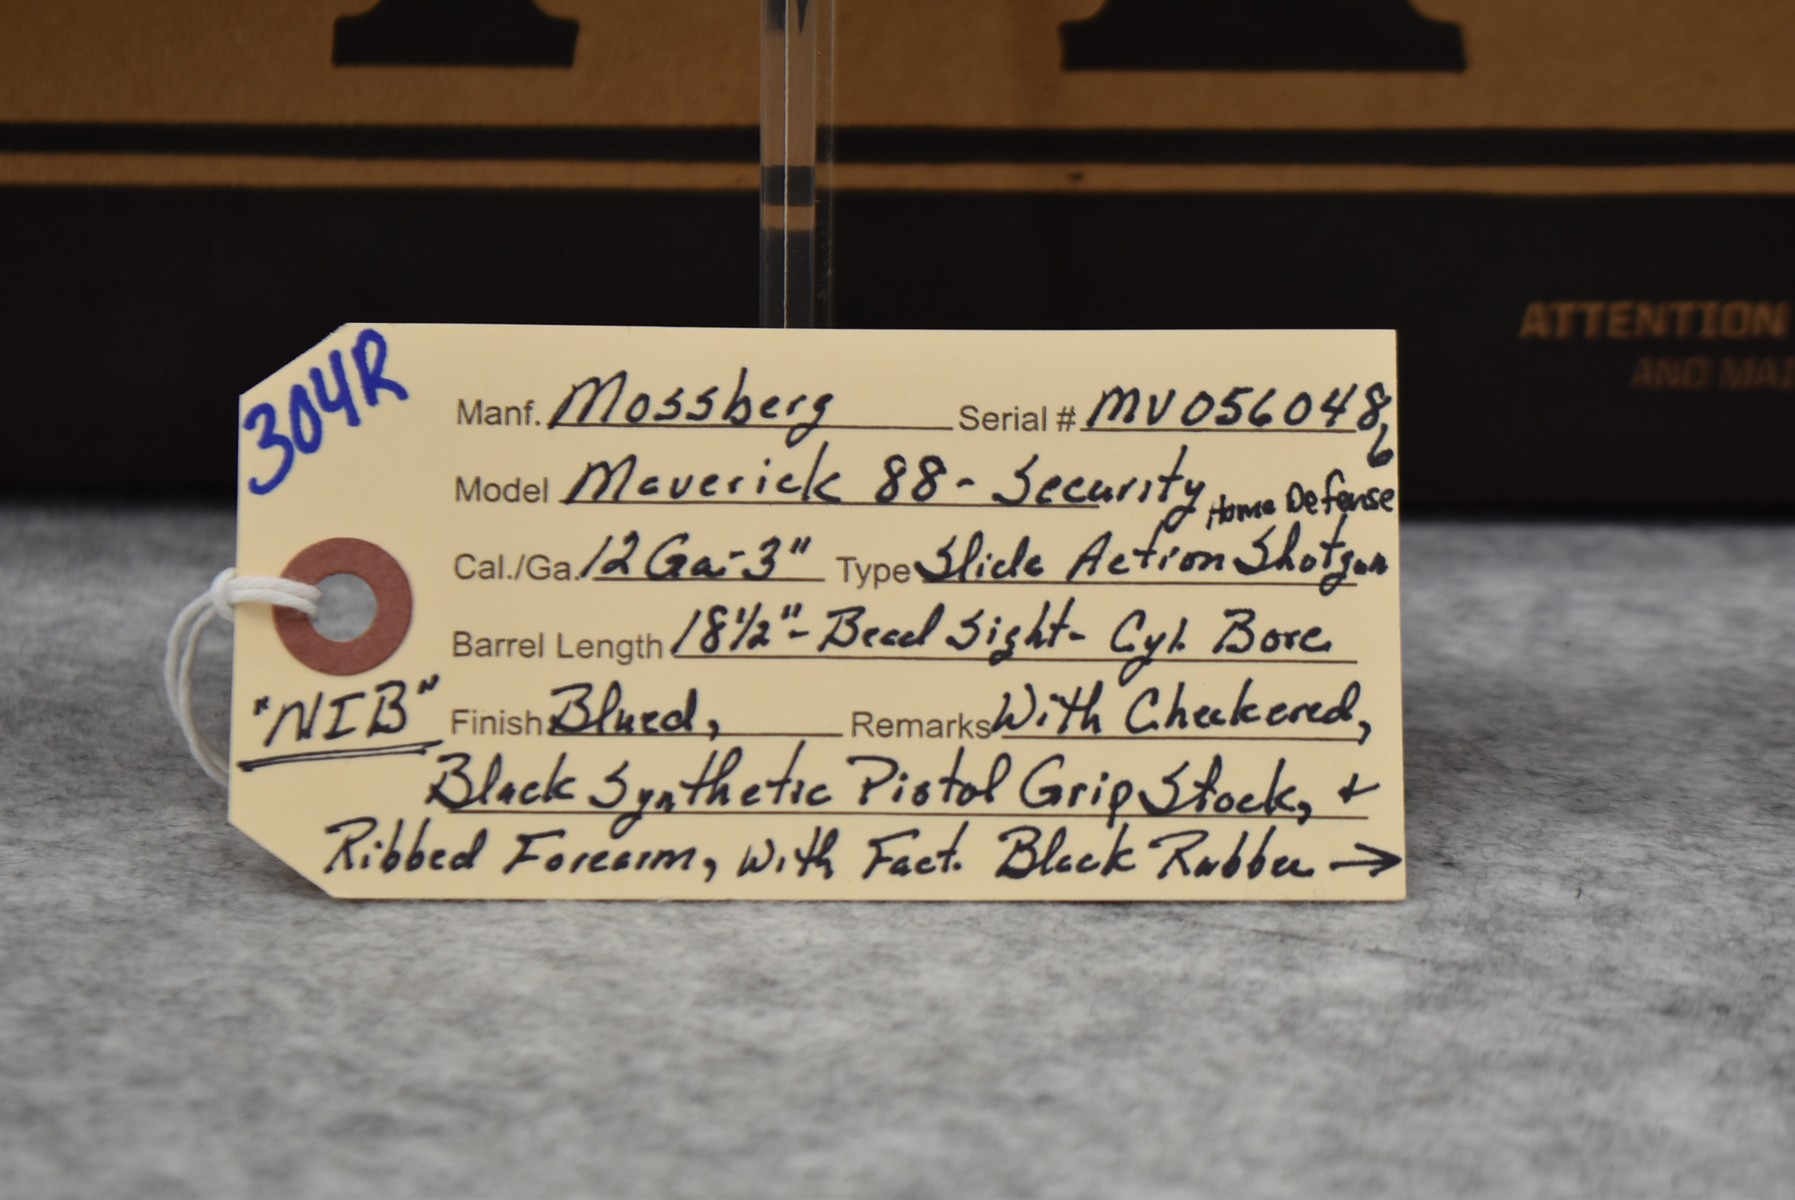 304R
Manf. Mossberg Serial # MV0560486
Model Maverick 88- Security Home Defense
Cal./Ga. 12 Ga-3" Type Slide Action Shotgun
Barrel Length 18½"- Bead Sight- Cyl. Bore
"NIB" Finish Blued, Remarks With Checkered,
Black Synthetic Pistol Grip Stock, +
Ribbed Forearm, With Fact. Black Rubber →
ATTENTION
AND MAI